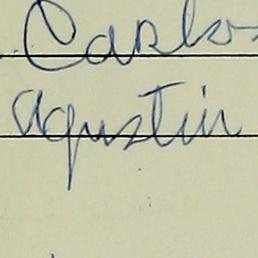 Carlos
Agustin